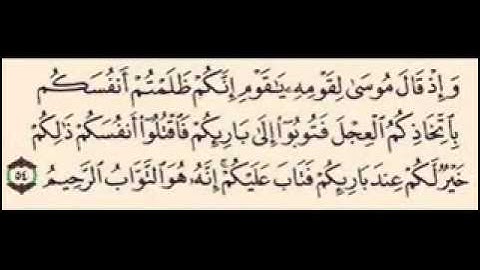 وَإِذْ قَالَ مُوسَىٰ لِقَوْمِهِۦ يَٰقَوْمِ إِنَّكُمْ ظَلَمْتُمْ أَنفُسَكُم
بِٱتِّخَاذِكُمُ ٱلْعِجْلَ فَتُوبُوٓا۟ إِلَىٰ بَارِئِكُمْ فَٱقْتُلُوٓا۟ أَنفُسَكُمْ ذَٰلِكُمْ
خَيْرٌ لَّكُمْ عِندَ بَارِئِكُمْ فَتَابَ عَلَيْكُمْ ۚ إِنَّهُۥ هُوَ ٱلتَّوَّابُ ٱلرَّحِيمُ ٥٤